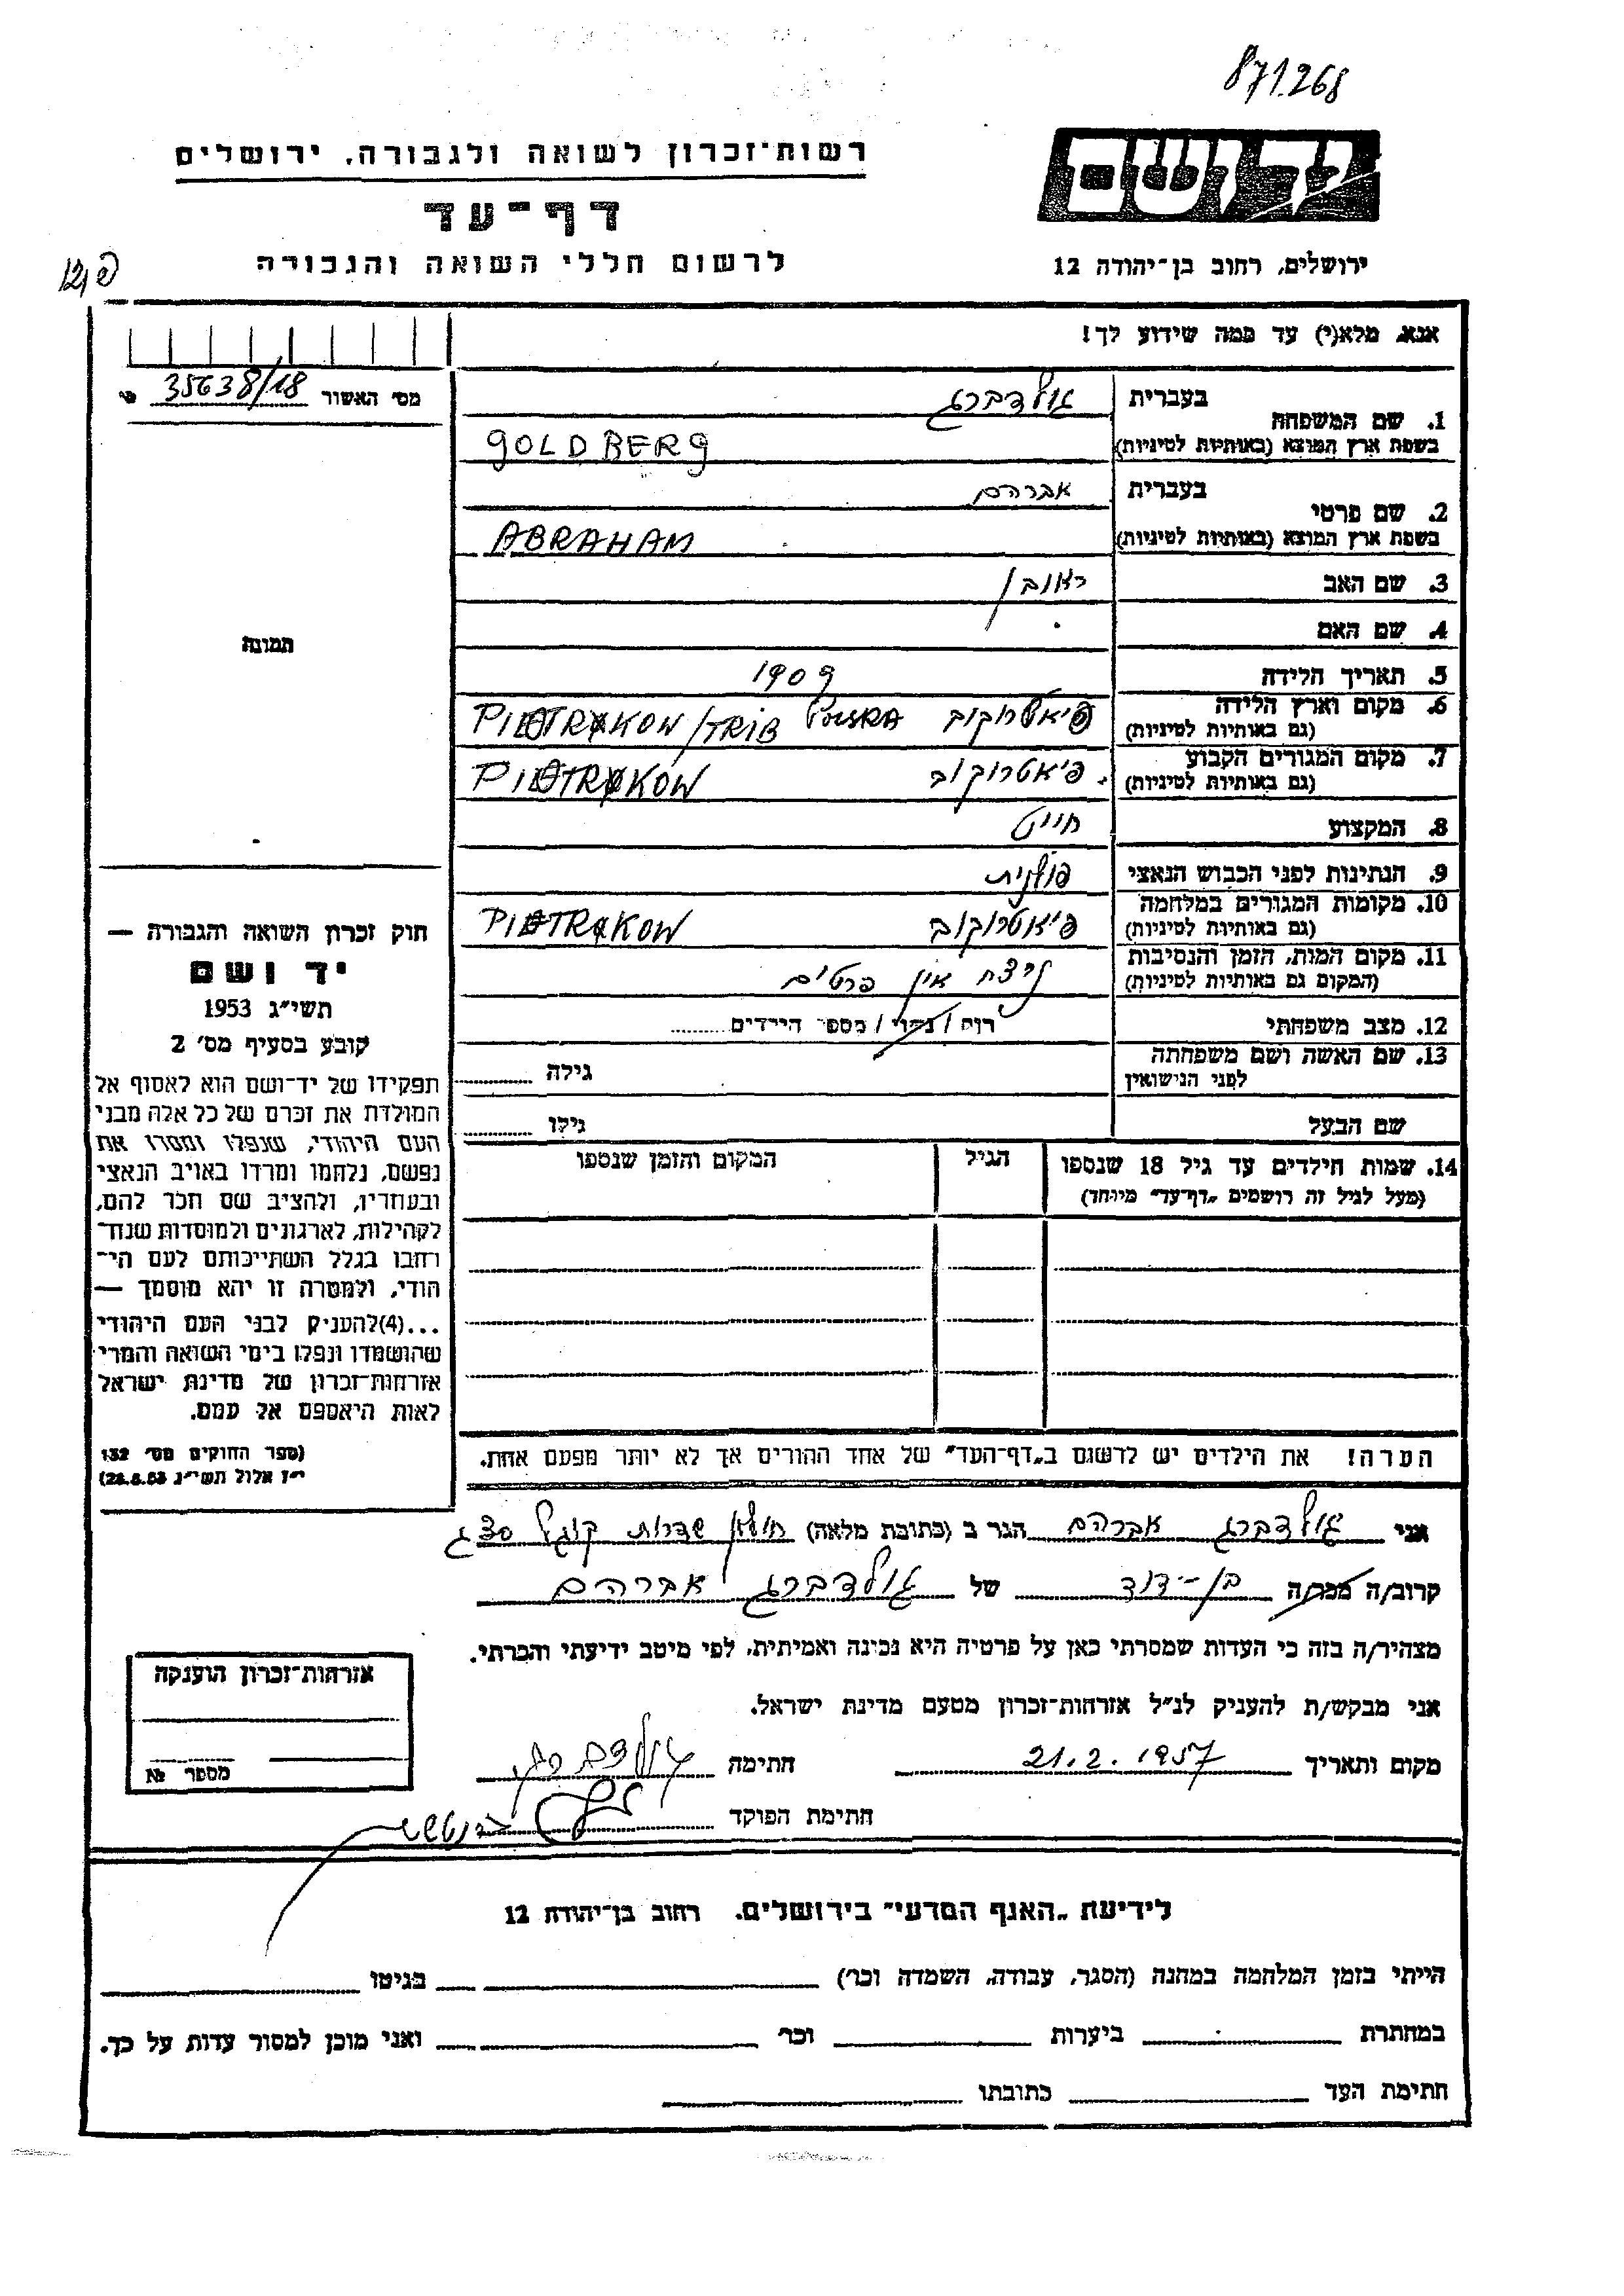 871.268
יד ושם
רשות־זכרון לשואה ולגבורה, ירושלים
דף־עד
לרשום חללי השואה והגבורה
ירושלים, רחוב בן־יהודה 12
אנא, מלא(י) עד כמה שידוע לך!
מס׳ האשור 35638/18
1. שם המשפחה בעברית גולדברג
בשפת ארץ המוצא (באותיות לטיניות) GOLDBERG
2. שם פרטי בעברית אברהם
בשפת ארץ המוצא (באותיות לטיניות) ABRAHAM
3. שם האב ראובן
4. שם האם
תמונה
5. תאריך הלידה 1909
6. מקום וארץ הלידה פיאטרוקוב PIOTRKOW/TRIB POLSKA
(גם באותיות לטיניות)
7. מקום המגורים הקבוע פיאטרוקוב PIOTRKOW
(גם באותיות לטיניות)
8. המקצוע חייט
9. הנתינות לפני הכבוש הנאצי פולנית
10. מקומות המגורים במלחמה פיאטרוקוב PIOTRKOW
(גם באותיות לטיניות)
11. מקום המות, הזמן והנסיבות נרצח אין פרטים
(המקום גם באותיות לטיניות)
12. מצב משפחתי רווק / נשוי / מספר הילדים
13. שם האשה ושם משפחתה
לפני הנישואין גילה
שם הבעל גילו
14. שמות הילדים עד גיל 18 שנספו הגיל המקום והזמן שנספו
(מעל לגיל זה רושמים „דף־עד״ מיוחד)
חוק זכרון השואה והגבורה —
יד ושם
תשי״ג 1953
קובע בסעיף מס׳ 2
תפקידו של יד־ושם הוא לאסוף אל
המולדת את זכרם של כל אלה מבני
העם היהודי, שנפלו ומסרו את
נפשם, נלחמו ומרדו באויב הנאצי
ובעוזריו, ולהציב שם וזכר להם,
לקהילות, לארגונים ולמוסדות שנח־
רבו בגלל השתייכותם לעם הי־
הודי, ולמטרה זו יהא מוסמך —
...(4)להעניק לבני העם היהודי
שהושמדו ונפלו בימי השואה והמרי
אזרחות־זכרון של מדינת ישראל
לאות היאספם אל עמם.
(ספר החוקים מס׳ 132
י״ז אלול תשי״ג 28.8.53)
הערה! את הילדים יש לרשום ב„דף־העד״ של אחד ההורים אך לא יותר מפעם אחת.
אני גולדברג אברהם הגר ב (כתובת מלאה) חולון שדרות קוגל
קרוב/ה מכר/ה בן-דוד של גולדברג אברהם
מצהיר/ה בזה כי העדות שמסרתי כאן על פרטיה היא נכונה ואמיתית, לפי מיטב ידיעתי והכרתי.
אני מבקש/ת להעניק לנ״ל אזרחות־זכרון מטעם מדינת ישראל.
מקום ותאריך 21.2.1957 חתימה גולדברג
חתימת הפוקד
אזרחות־זכרון הוענקה
מספר №
לידיעת „האגף המדעי״ בירושלים, רחוב בן־יהודה 12
הייתי בזמן המלחמה במחנה (הסגר, עבודה, השמדה וכו׳) בגיטו
במחתרת ביערות וכו׳ ואני מוכן למסור עדות על כך.
חתימת העד כתובתו